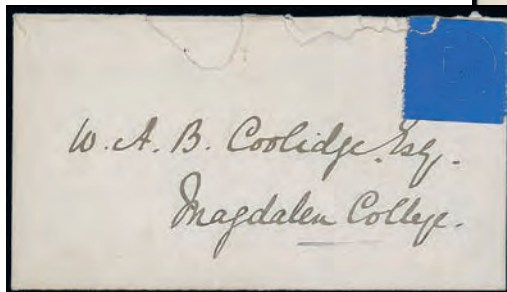 W. A. B. Coolidge. Esq.
Magdalen College.